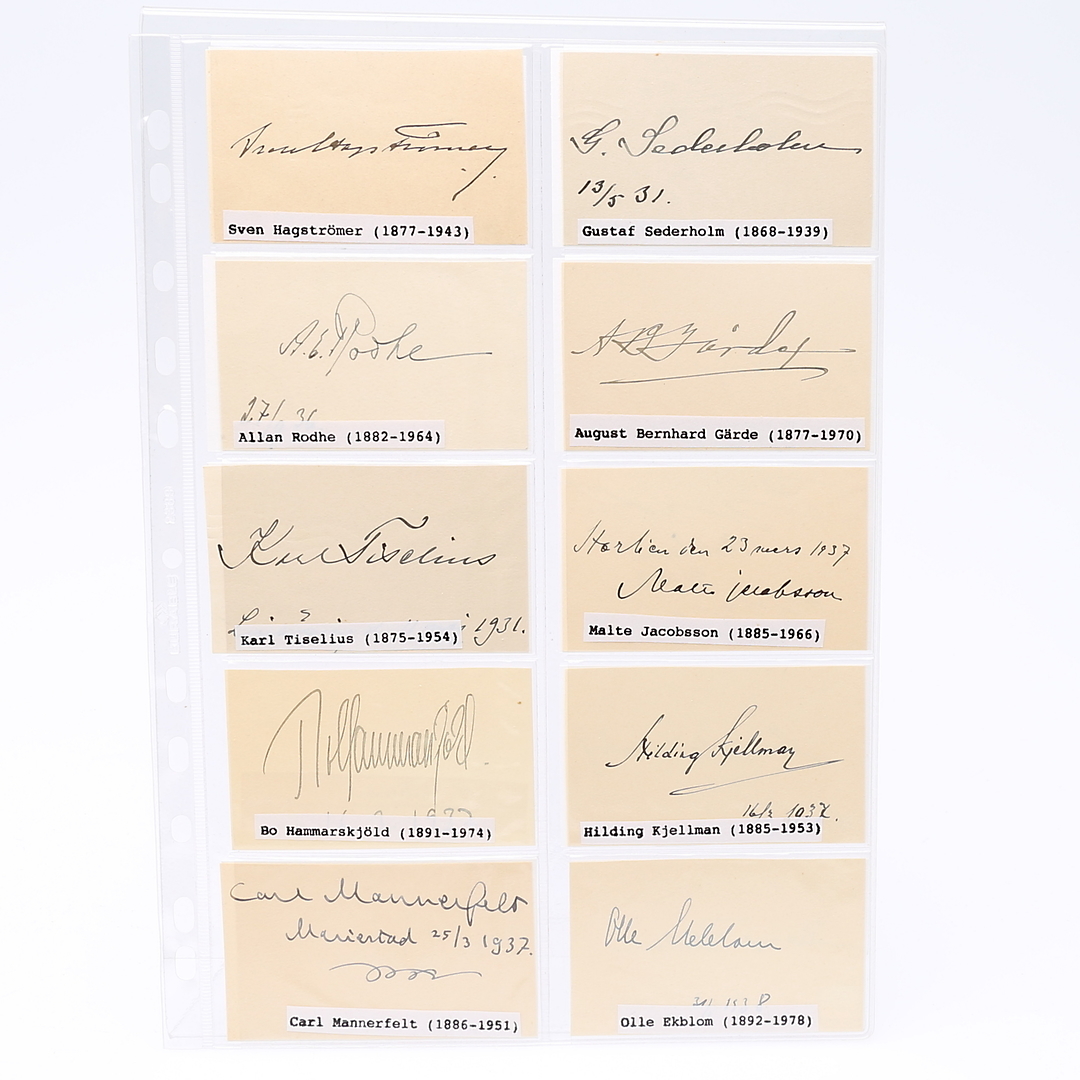 Sven Hagströmer
Sven Hagströmer (1877-1943)
G. Sederholm
13/5 31.
Gustaf Sederholm (1868-1939)
A. E. Rodhe
Allan Rodhe (1882-1964)
A B Gärde
August Bernhard Gärde (1877-1970)
Karl Tiselius
1931.
Karl Tiselius (1875-1954)
den 23 mars 1937
Malte Jacobsson
Malte Jacobsson (1885-1966)
Bo Hammarskjöld
Bo Hammarskjöld (1891-1974)
Hilding Kjellman
Hilding Kjellman (1885-1953)
Carl Mannerfelt
Mariestad 25/3 1937.
Carl Mannerfelt (1886-1951)
Olle Ekblom
Olle Ekblom (1892-1978)